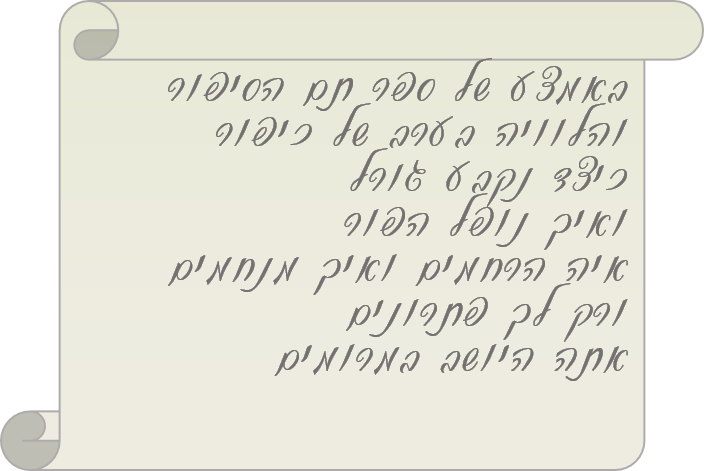 באמצע של ספר תם הסיפור
והלוויה בערב של כיפור
כיצד נקבע גורל
ואיך נופל הפור
איה הרחמים ואיך מנחמים
ורק לך פתרונים
אתה היושב במרומים